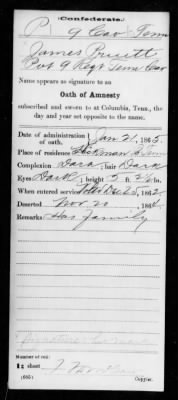 Confederate.
P 9 Cav Tenn
James Pruitt
Pvt 9 Regt Tenn Cav
Name appears as signature to an
Oath of Amnesty
subscribed and sworn to at Columbia, Tenn., the
day and year set opposite to the name.
Date of administration of oath, Jan 21, 1865.
Place of residence Hickman Co Tenn
Complexion Dark; hair Dark
Eyes Dark; height 5 ft. in.
When entered service 1862.
Deserted Nov 20, 1864.
Remarks Has family
Number of roll:
sheet
(655) Copyist.